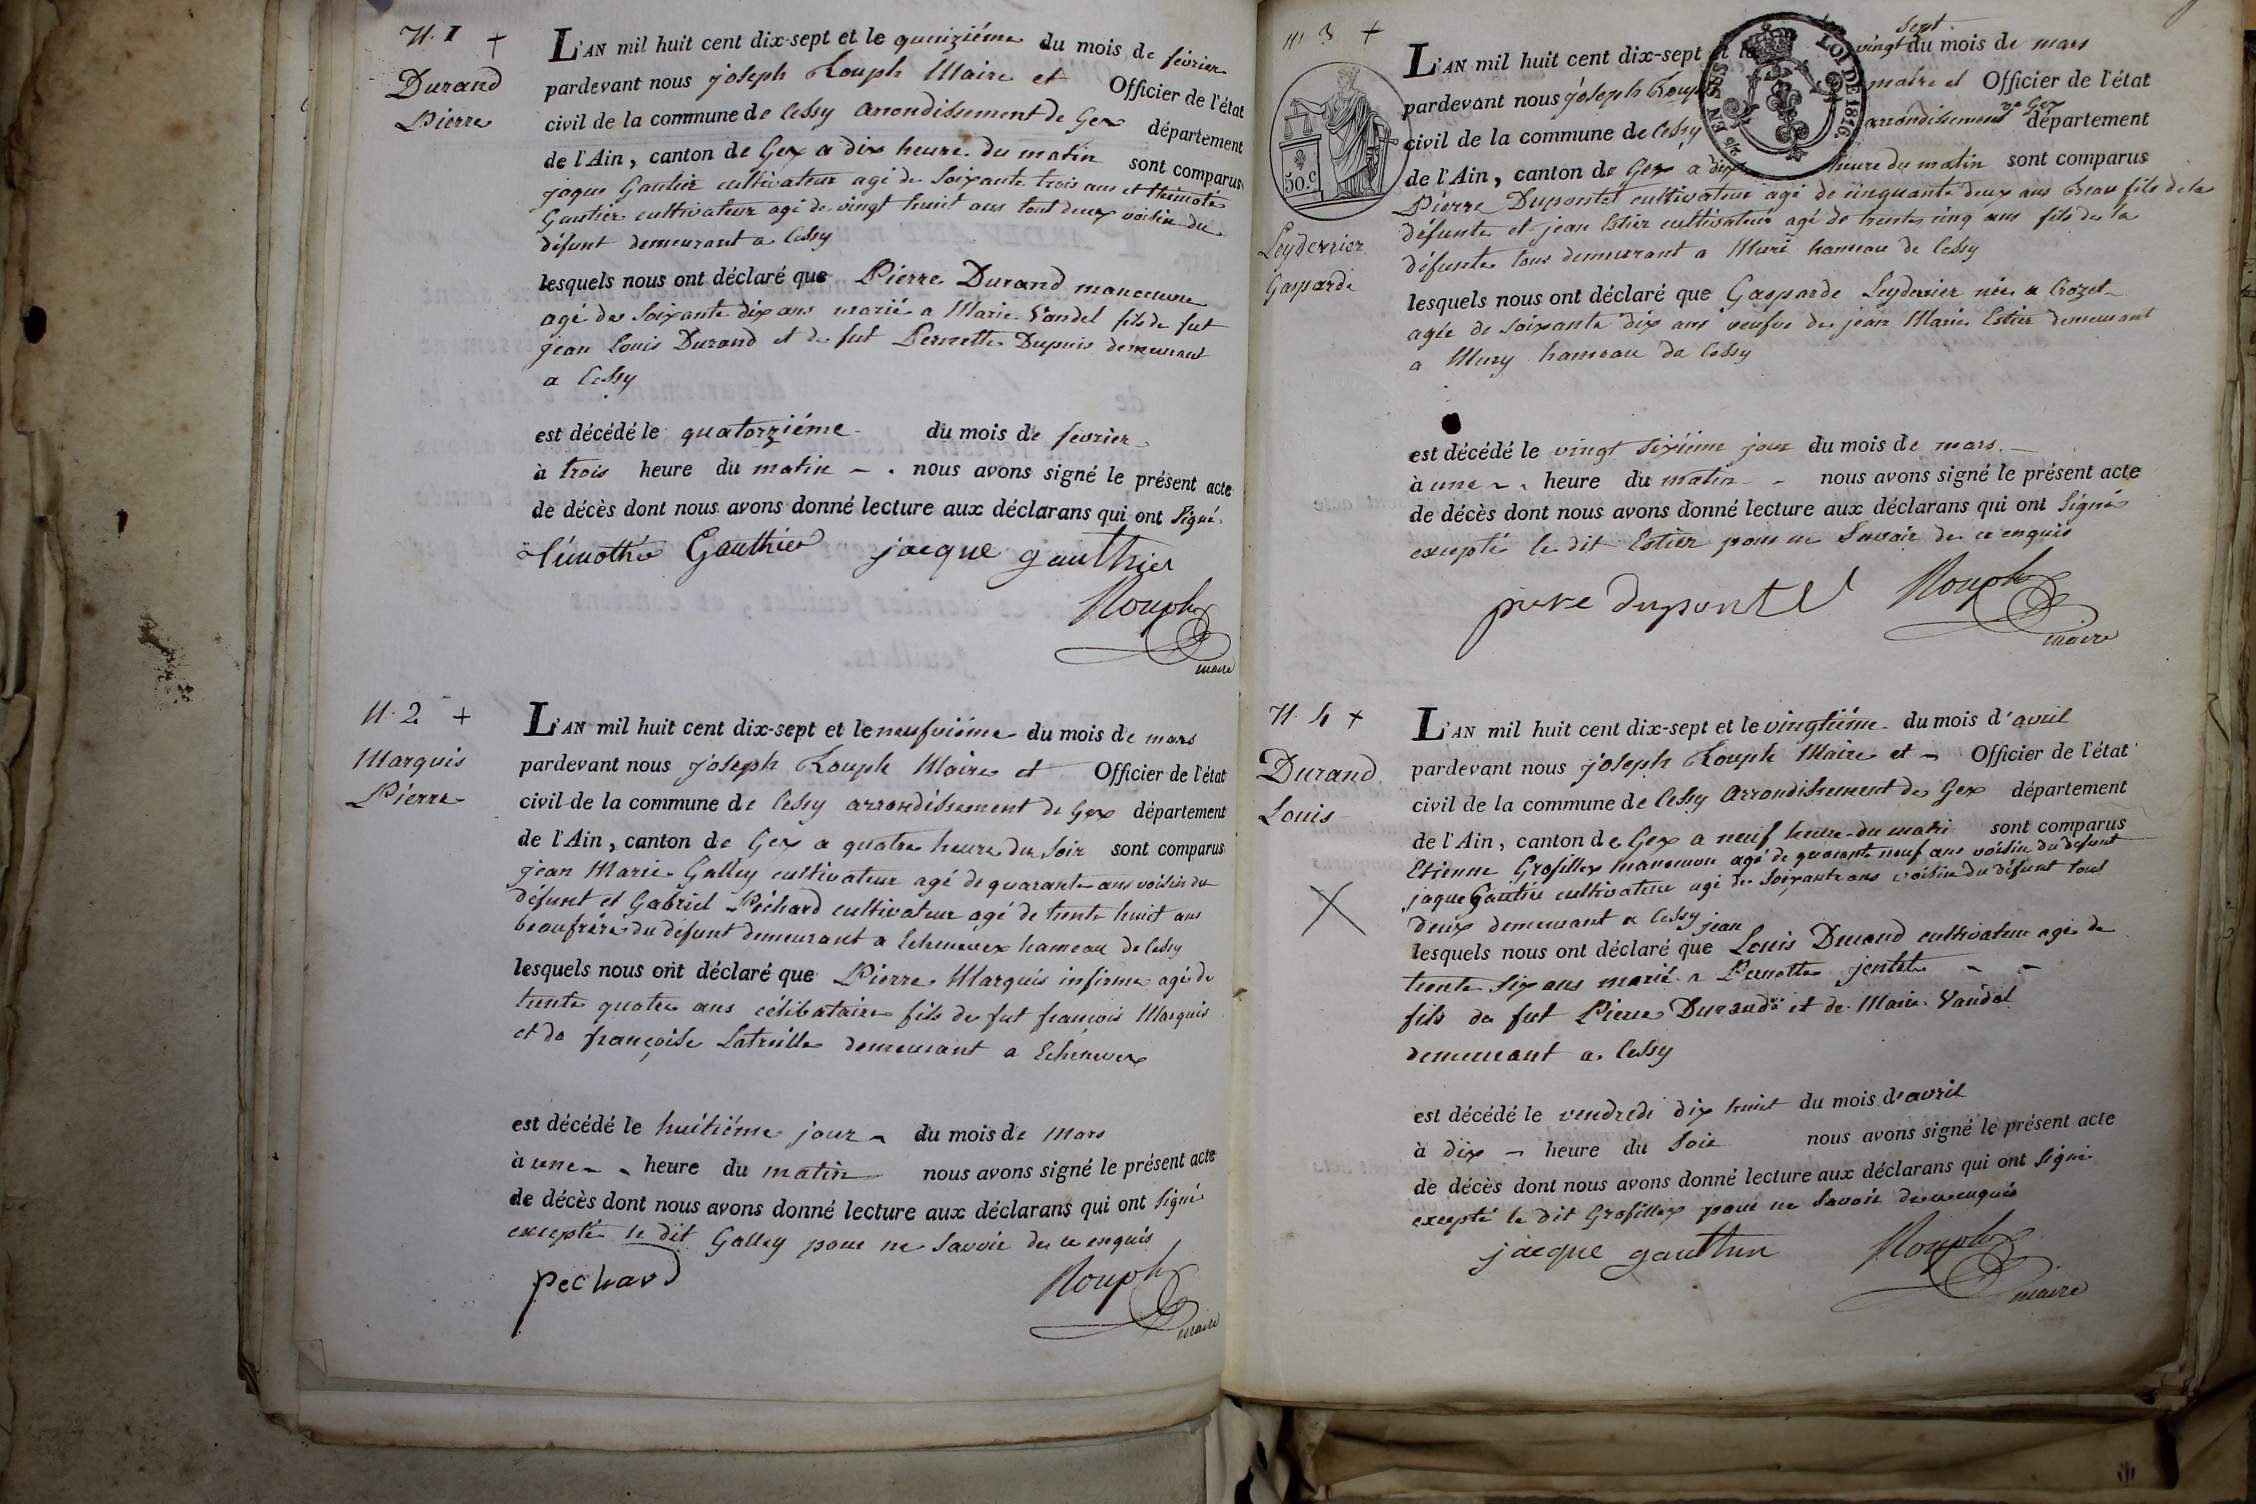 N. 1 +
Durand
Pierre
L'AN mil huit cent dix-sept et le quinziéme du mois de fevrier
pardevant nous joseph Rouph Maire et Officier de l'état
civil de la commune de Cessy arrondissement de Gex département
de l'Ain, canton de Gex a dix heure du matin sont comparus
jaque Gautier cultivateur agé de Soixante trois ans et thimoté
Gautier cultivateur agé de vingt huit ans tout deux voisin du
défunt demeurant a Cessy
lesquels nous ont déclaré que Pierre Durand manoeuvre
agé de Soixante dix ans marié a Marie Vandel fils de fut
jean Louis Durand et de fut Pernette Dupuis demeurant
a Cessy
est décédé le quatorziéme du mois de fevrier
à trois heure du matin - . nous avons signé le présent acte
de décès dont nous avons donné lecture aux déclarans qui ont Signé.
timothé Gauthier jacque gauthier
Rouph
maire
N. 2 +
Marquis
Pierre
L'AN mil huit cent dix-sept et le neufviéme du mois de mars
pardevant nous joseph Rouph Maire et Officier de l'état
civil de la commune de Cessy arrondissement de Gex département
de l'Ain, canton de Gex a quatre heure du Soir sont comparus
jean Marie Galley cultivateur agé de quarante ans voisin du
défunt et Gabriel Péchard cultivateur agé de trente huit ans
beaufrére du défunt demeurant a Echenevex hameau de Cessy
lesquels nous ont déclaré que Pierre Marquis infirme agé de
trente quatre ans célibataire fils de fut françois Marquis
et de françoise Latreille demeurant a Echenevex
est décédé le huitiéme jour du mois de Mars
à une heure du matin nous avons signé le présent acte
de décès dont nous avons donné lecture aux déclarans qui ont Signé
excepté le dit Galley pour ne Savoir de ce enquis
pechard Rouph
maire
N. 3 +
50.c
EN SUS
LOI DE 1816.
Leyderrier
Gasparde
L'AN mil huit cent dix-sept et le vingt sept du mois de mars
pardevant nous joseph Rouph maire et Officier de l'état
civil de la commune de Cessy arrondissement de Gex département
de l'Ain, canton de Gex a dix heure du matin sont comparus
Pierre Dupontet cultivateur agé de cinquante deux ans Beau fils de la
défunte et jean Estier cultivateur agé de trente cinq ans fils de la
défunte tous demeurant a Muri hameau de Cessy
lesquels nous ont déclaré que Gasparde Leyderrier née a Crozet
agée de Soixante dix ans veufve de jean Marie Estier demeurant
a Mury hameau de Cessy
est décédé le vingt sixiéme jour du mois de mars.
à une heure du matin nous avons signé le présent acte
de décès dont nous avons donné lecture aux déclarans qui ont Signé
excepté le dit Estier pour ne Savoir de ce enquis
Rouph
maire
N. 4 +
Durand
Louis
X
L'AN mil huit cent dix-sept et le vingtiéme du mois d'avril
pardevant nous joseph Rouph Maire et Officier de l'état
civil de la commune de Cessy Arrondissement de Gex département
de l'Ain, canton de Gex a neuf heure du matin sont comparus
Etienne Grosfillex manoeuvre agé de quarante neuf ans voisin du défunt
jaque Gautier cultivateur agé de Soixante ans voisin du défunt tous
deux demeurant a Cessy
lesquels nous ont déclaré que jean Louis Durand cultivateur agé de
trente Six ans marié a Pernette jentet
fils de fut Pierre Durand et de Marie Vandel
demeurant a Cessy
est décédé le vendredi dix huit du mois d'avril
à dix heure du Soir nous avons signé le présent acte
de décès dont nous avons donné lecture aux déclarans qui ont Signé
excepté le dit Grosfillex pour ne Savoir de ce enquis
jacque gauthier Rouph
maire